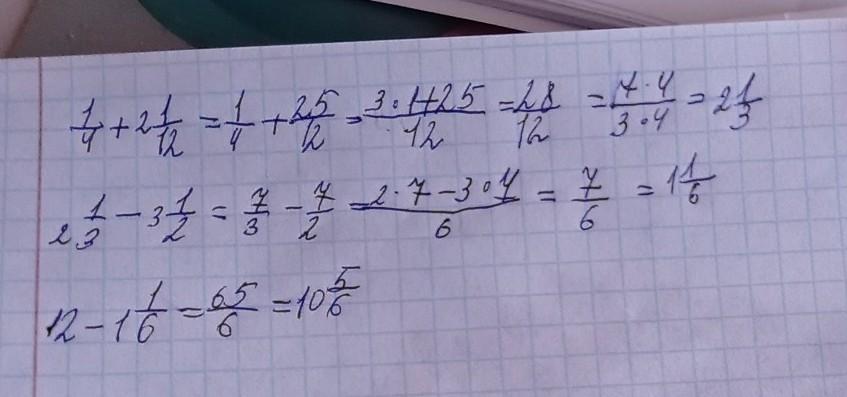 1/4 + 2 1/12 = 1/4 + 25/12 = (3·1+25)/12 = 28/12 = (7·4)/(3·4) = 2 1/3
2 1/3 − 3 1/2 = 7/3 − 7/2 = (2·7−3·7)/6 = 7/6 = 1 1/6
12 − 1 1/6 = 65/6 = 10 5/6